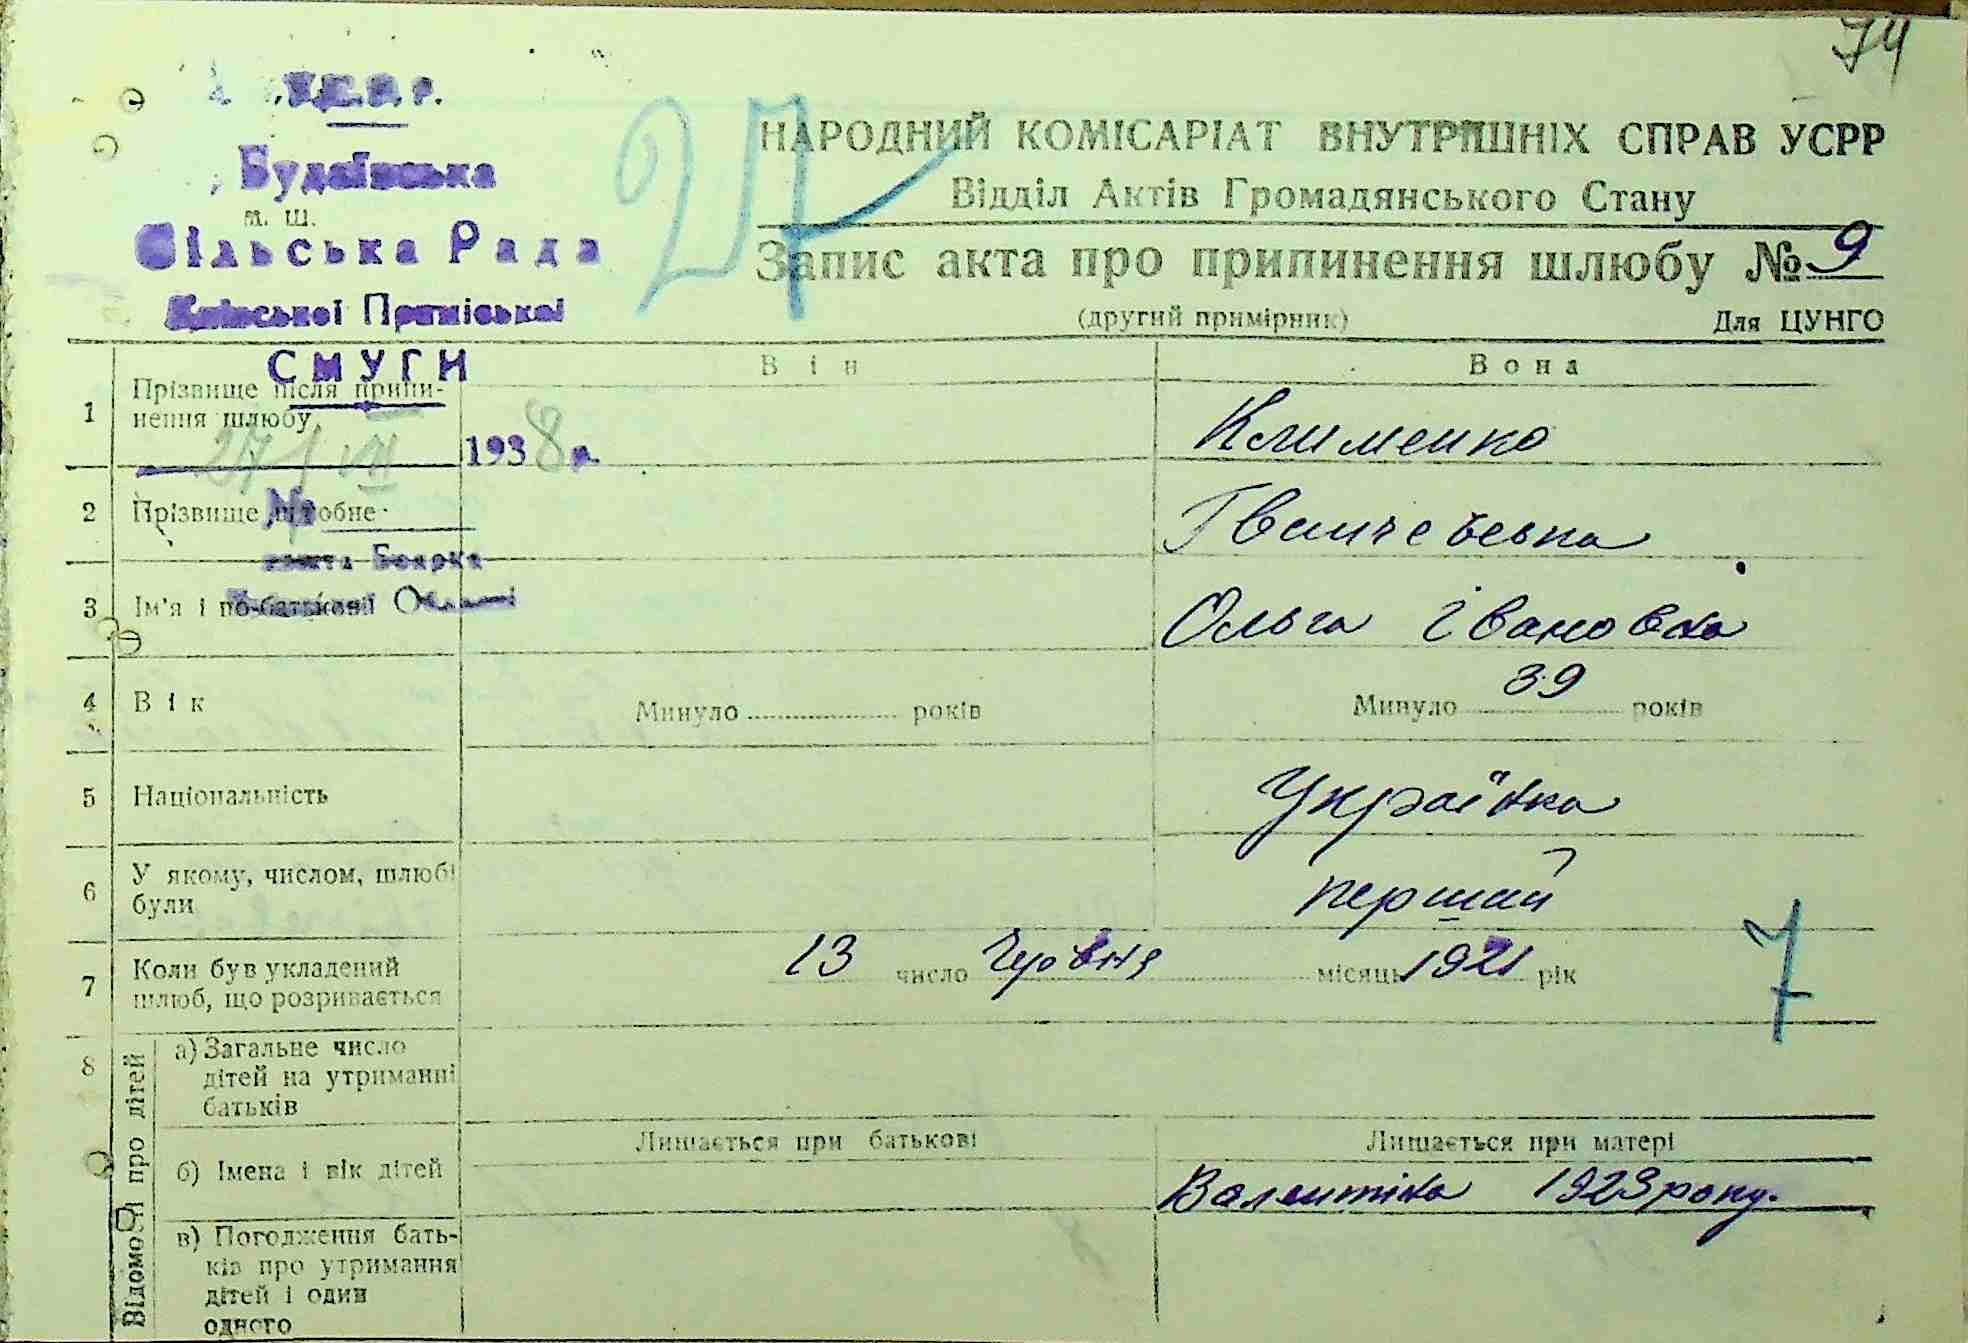 74
Будаївська
м. ш.
Сільська Рада
Київської Приміської
СМУГИ
1938 р.
пошта Боярка
27
НАРОДНИЙ КОМІСАРІАТ ВНУТРІШНІХ СПРАВ УСРР
Відділ Актів Громадянського Стану
Запис акта про припинення шлюбу № 9
(другий примірник) Для ЦУНГО
Він Вона
1 Прізвище після припи-
нення шлюбу Клименко
2 Прізвище шлюбне
3 Ім'я і по-батькові Ольга Івановна
4 Вік Минуло років Минуло 39 років
5 Національність Українка
6 У якому, числом, шлюбі
були першай
7 Коли був укладений
шлюб, що розривається 13 число Червня місяць 1921 рік
7
8 Відомості про дітей
а) Загальне число
дітей на утриманні
батьків
Лишається при батькові Лишається при матері
б) Імена і вік дітей Валентіна 1923 року.
в) Погодження бать-
ків про утримання
дітей і один
одного